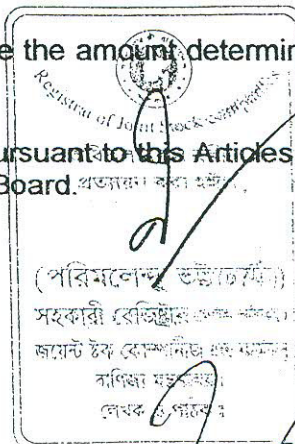 e the amount determin
Registrar of Joint Stock Companies
ursuant to this Articles
Board.
প্রত্যায়ন করা হইল।
(পরিমলেন্দু ভট্টাচার্য্য)
সহকারী রেজিষ্ট্রার
জয়েন্ট ষ্টক কোম্পানীজ এন্ড
বাণিজ্য মন্ত্রণালয়।
লেখক ও পাঠকঃ